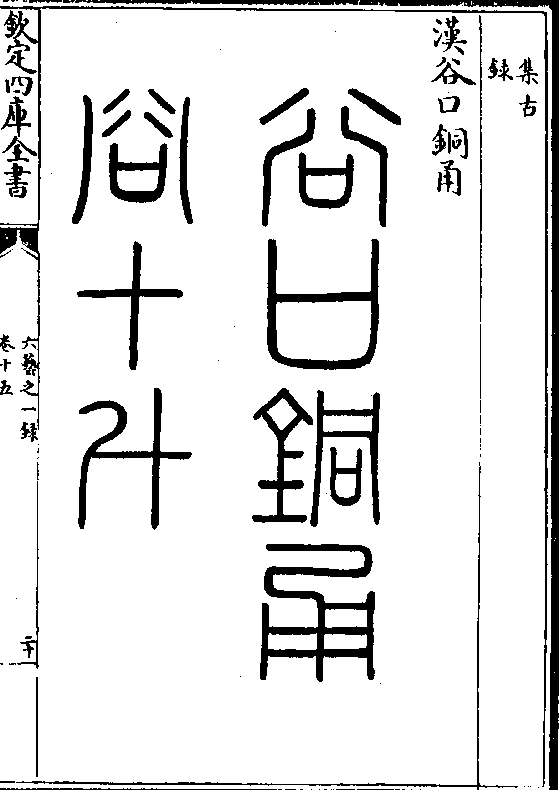 集古
録
漢谷口銅甬
谷口銅甬
容十升
欽定四庫全書
六藝之一録
卷十五
二十